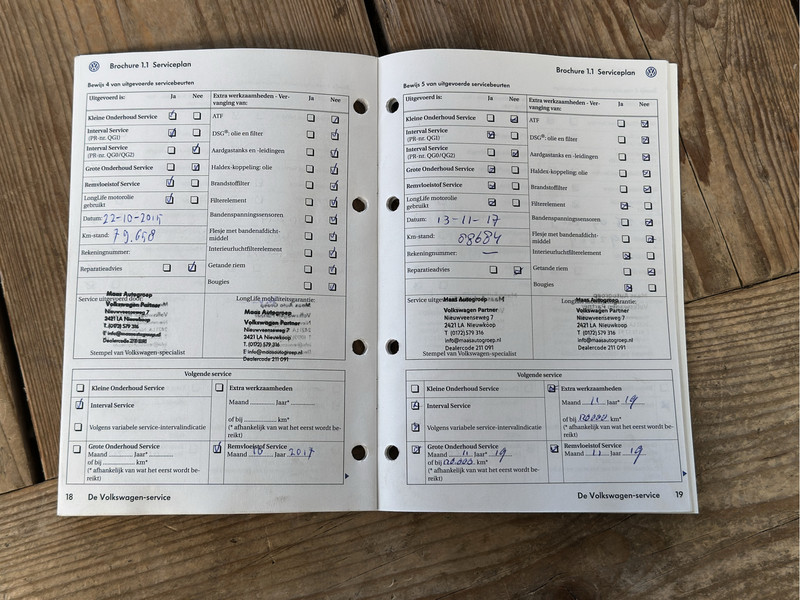 Brochure 1.1 Serviceplan
Bewijs 4 van uitgevoerde servicebeurten
Uitgevoerd is: Ja Nee Extra werkzaamheden - Ver-
vanging van: Ja Nee
Kleine Onderhoud Service
ATF
Interval Service
(PR-nr. QG1)
DSG®: olie en filter
Interval Service
(PR-nr. QG0/QG2)
Aardgastanks en -leidingen
Grote Onderhoud Service
Haldex-koppeling: olie
Remvloeistof Service
Brandstoffilter
LongLife motorolie
gebruikt
Filterelement
Datum: 22-10-2015
Bandenspanningssensoren
Km-stand: 79.658
Flesje met bandenafdicht-
middel
Rekeningnummer:
Interieurluchtfilterelement
Reparatieadvies
Getande riem
Bougies
Service uitgevoerd door:
Maas Autogroep
Volkswagen Partner
Nieuwveenseweg 7
2421 LA Nieuwkoop
T. (0172) 579 316
E info@maasautogroep.nl
Dealercode 211 091
Stempel van Volkswagen-specialist
LongLife mobiliteitsgarantie:
Maas Autogroep
Volkswagen Partner
Nieuwveenseweg 7
2421 LA Nieuwkoop
T. (0172) 579 316
E info@maasautogroep.nl
Dealercode 211 091
Volgende service
Kleine Onderhoud Service
Interval Service
Volgens variabele service-intervalindicatie
Grote Onderhoud Service
Maand Jaar*
of bij km*
(* afhankelijk van wat het eerst wordt be-
reikt)
Extra werkzaamheden
Maand Jaar*
of bij km*
(* afhankelijk van wat het eerst wordt be-
reikt)
Remvloeistof Service
Maand 10 Jaar 2017
18 De Volkswagen-service
Brochure 1.1 Serviceplan
Bewijs 5 van uitgevoerde servicebeurten
Uitgevoerd is: Ja Nee Extra werkzaamheden - Ver-
vanging van: Ja Nee
Kleine Onderhoud Service
ATF
Interval Service
(PR-nr. QG1)
DSG®: olie en filter
Interval Service
(PR-nr. QG0/QG2)
Aardgastanks en -leidingen
Grote Onderhoud Service
Haldex-koppeling: olie
Remvloeistof Service
Brandstoffilter
LongLife motorolie
gebruikt
Filterelement
Datum: 13-11-17
Bandenspanningssensoren
Km-stand: 88684
Flesje met bandenafdicht-
middel
Rekeningnummer: —
Interieurluchtfilterelement
Reparatieadvies
Getande riem
Bougies
Service
Maas Autogroep
Volkswagen Partner
Nieuwveenseweg 7
2421 LA Nieuwkoop
T (0172) 579 316
info@maasautogroep.nl
Dealercode 211 091
Stempel van Volkswagen-specialist
Maas Autogroep
Volkswagen Partner
Nieuwveenseweg 7
2421 LA Nieuwkoop
T (0172) 579 316
info@maasautogroep.nl
Dealercode 211 091
Volgende service
Kleine Onderhoud Service
Interval Service
Volgens variabele service-intervalindicatie
Grote Onderhoud Service
Maand 11 Jaar* 19
of bij km*
(* afhankelijk van wat het eerst wordt be-
reikt)
Extra werkzaamheden
Maand 11 Jaar* 19
of bij km*
(* afhankelijk van wat het eerst wordt be-
reikt)
Remvloeistof Service
Maand 11 Jaar 19
De Volkswagen-service 19